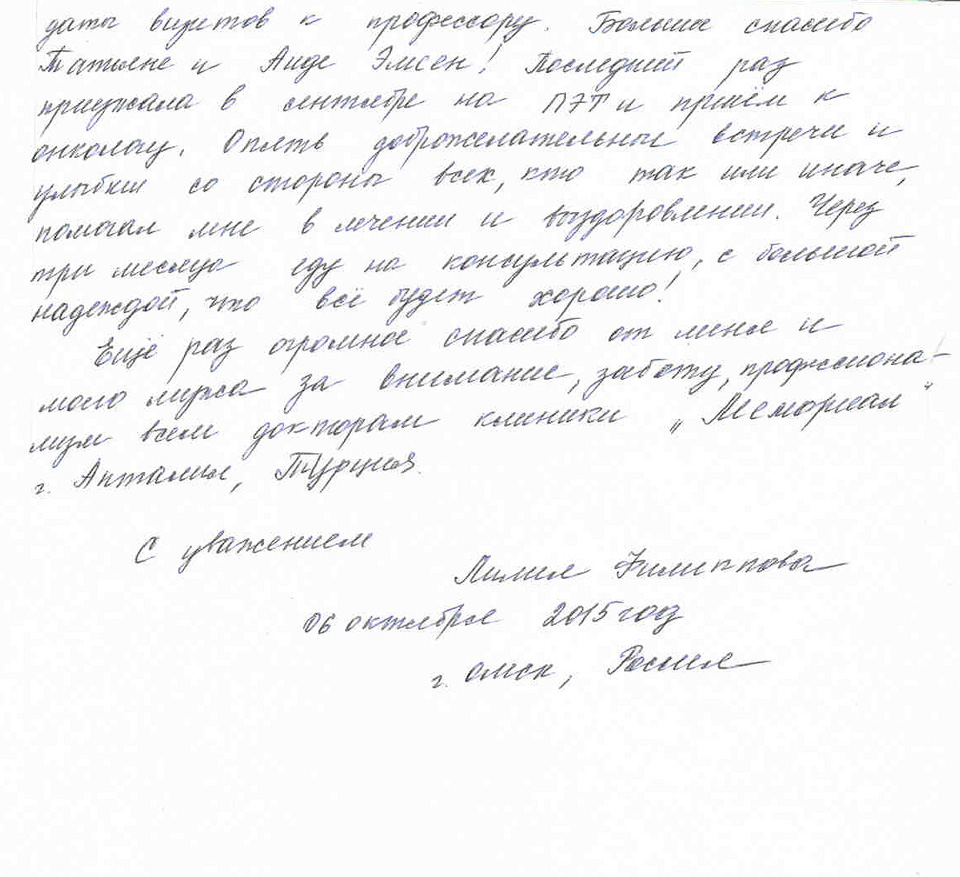 даты визитов к профессору. Большое спасибо
Татьяне и Аиде Элисен! Последний раз
приезжала в сентябре на ПЭТ и приём к
онкологу. Опять доброжелательные встречи и
улыбки со стороны всех, кто так или иначе,
помогал мне в лечении и выздоровлении. Через
три месяца еду на консультацию, с большой
надеждой, что всё будет хорошо!
Ещё раз огромное спасибо от меня и
моего мужа за внимание, заботу, профессиона-
лизм всем докторам клиники „Мемориал“
г. Анталия, Турция.
С уважением
Лилия Филиппова
06 октября 2015 год
г. Омск, Россия